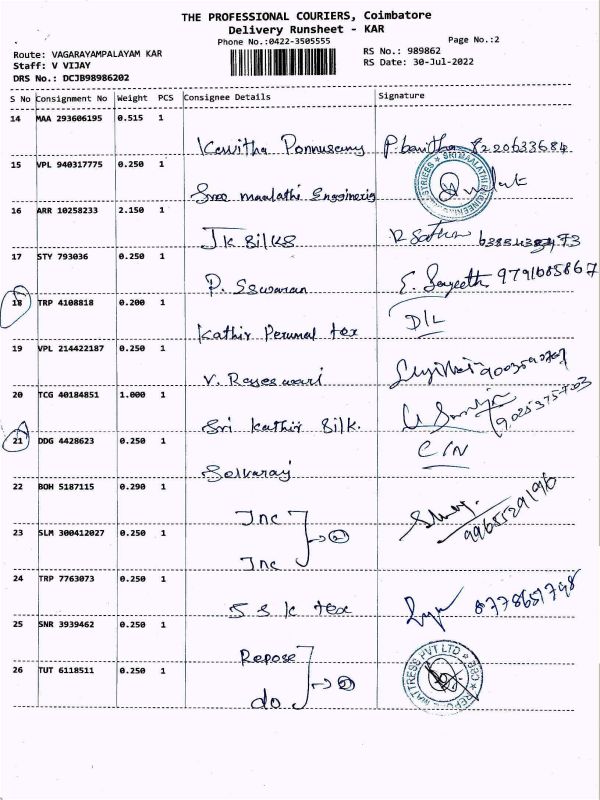 THE PROFESSIONAL COURIERS, Coimbatore
Delivery Runsheet - KAR
Phone No.:0422-3505555
Page No.:2
Route: VAGARAYAMPALAYAM KAR
RS No.: 989862
Staff: V VIJAY
RS Date: 30-Jul-2022
DRS No.: DCJB98986202
S No Consignment No Weight PCS Consignee Details Signature
14 MAA 293606195 0.515 1
Kavitha Ponnusamy 8220633684
15 VPL 940317775 0.250 1
Sree maalathi Engginerig
16 ARR 10258233 2.150 1
J K Silks
17 STY 793036 0.250 1
P. Sswaran 9791685867
18 TRP 4108818 0.200 1
D/L
Kathir Perumal tex
19 VPL 214422187 0.250 1
V. Rajeswari
20 TCG 40184851 1.000 1
Sri Kathir Silk.
21 DDG 4428623 0.250 1
C/N
Selvaraj
22 BOH 5187115 0.290 1
Inc
9965529196
23 SLM 300412027 0.250 1
Inc
24 TRP 7763073 0.250 1
S S K tex 8778651798
25 SNR 3939462 0.250 1
Repose
26 TUT 6118511 0.250 1
do